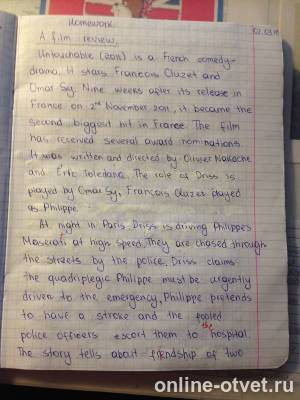 Homework
02.03.18
A film review.
Untouchable (2011) is a French comedy-
drama. It stars Francois Cluzet and
Omar Sy. Nine weeks after its release in
France on 2nd November 2011, it became the
second biggest hit in France. The film
has received several award nominations.
It was written and directed by Olivier Nakache
and Eric Toledano. The role of Driss is
played by Omar Sy, François Cluzet played
as Philippe.
At night in Paris Driss is driving Philippe's
Maserati at high speed. They are chased through
the streets by the police. Driss claims
the quadriplegic Philippe must be urgently
driven to the emergency, Philippe pretends
to have a stroke and the fooled
police officers escort them to the hospital.
The story tells about friendship of two
online-otvet.ru